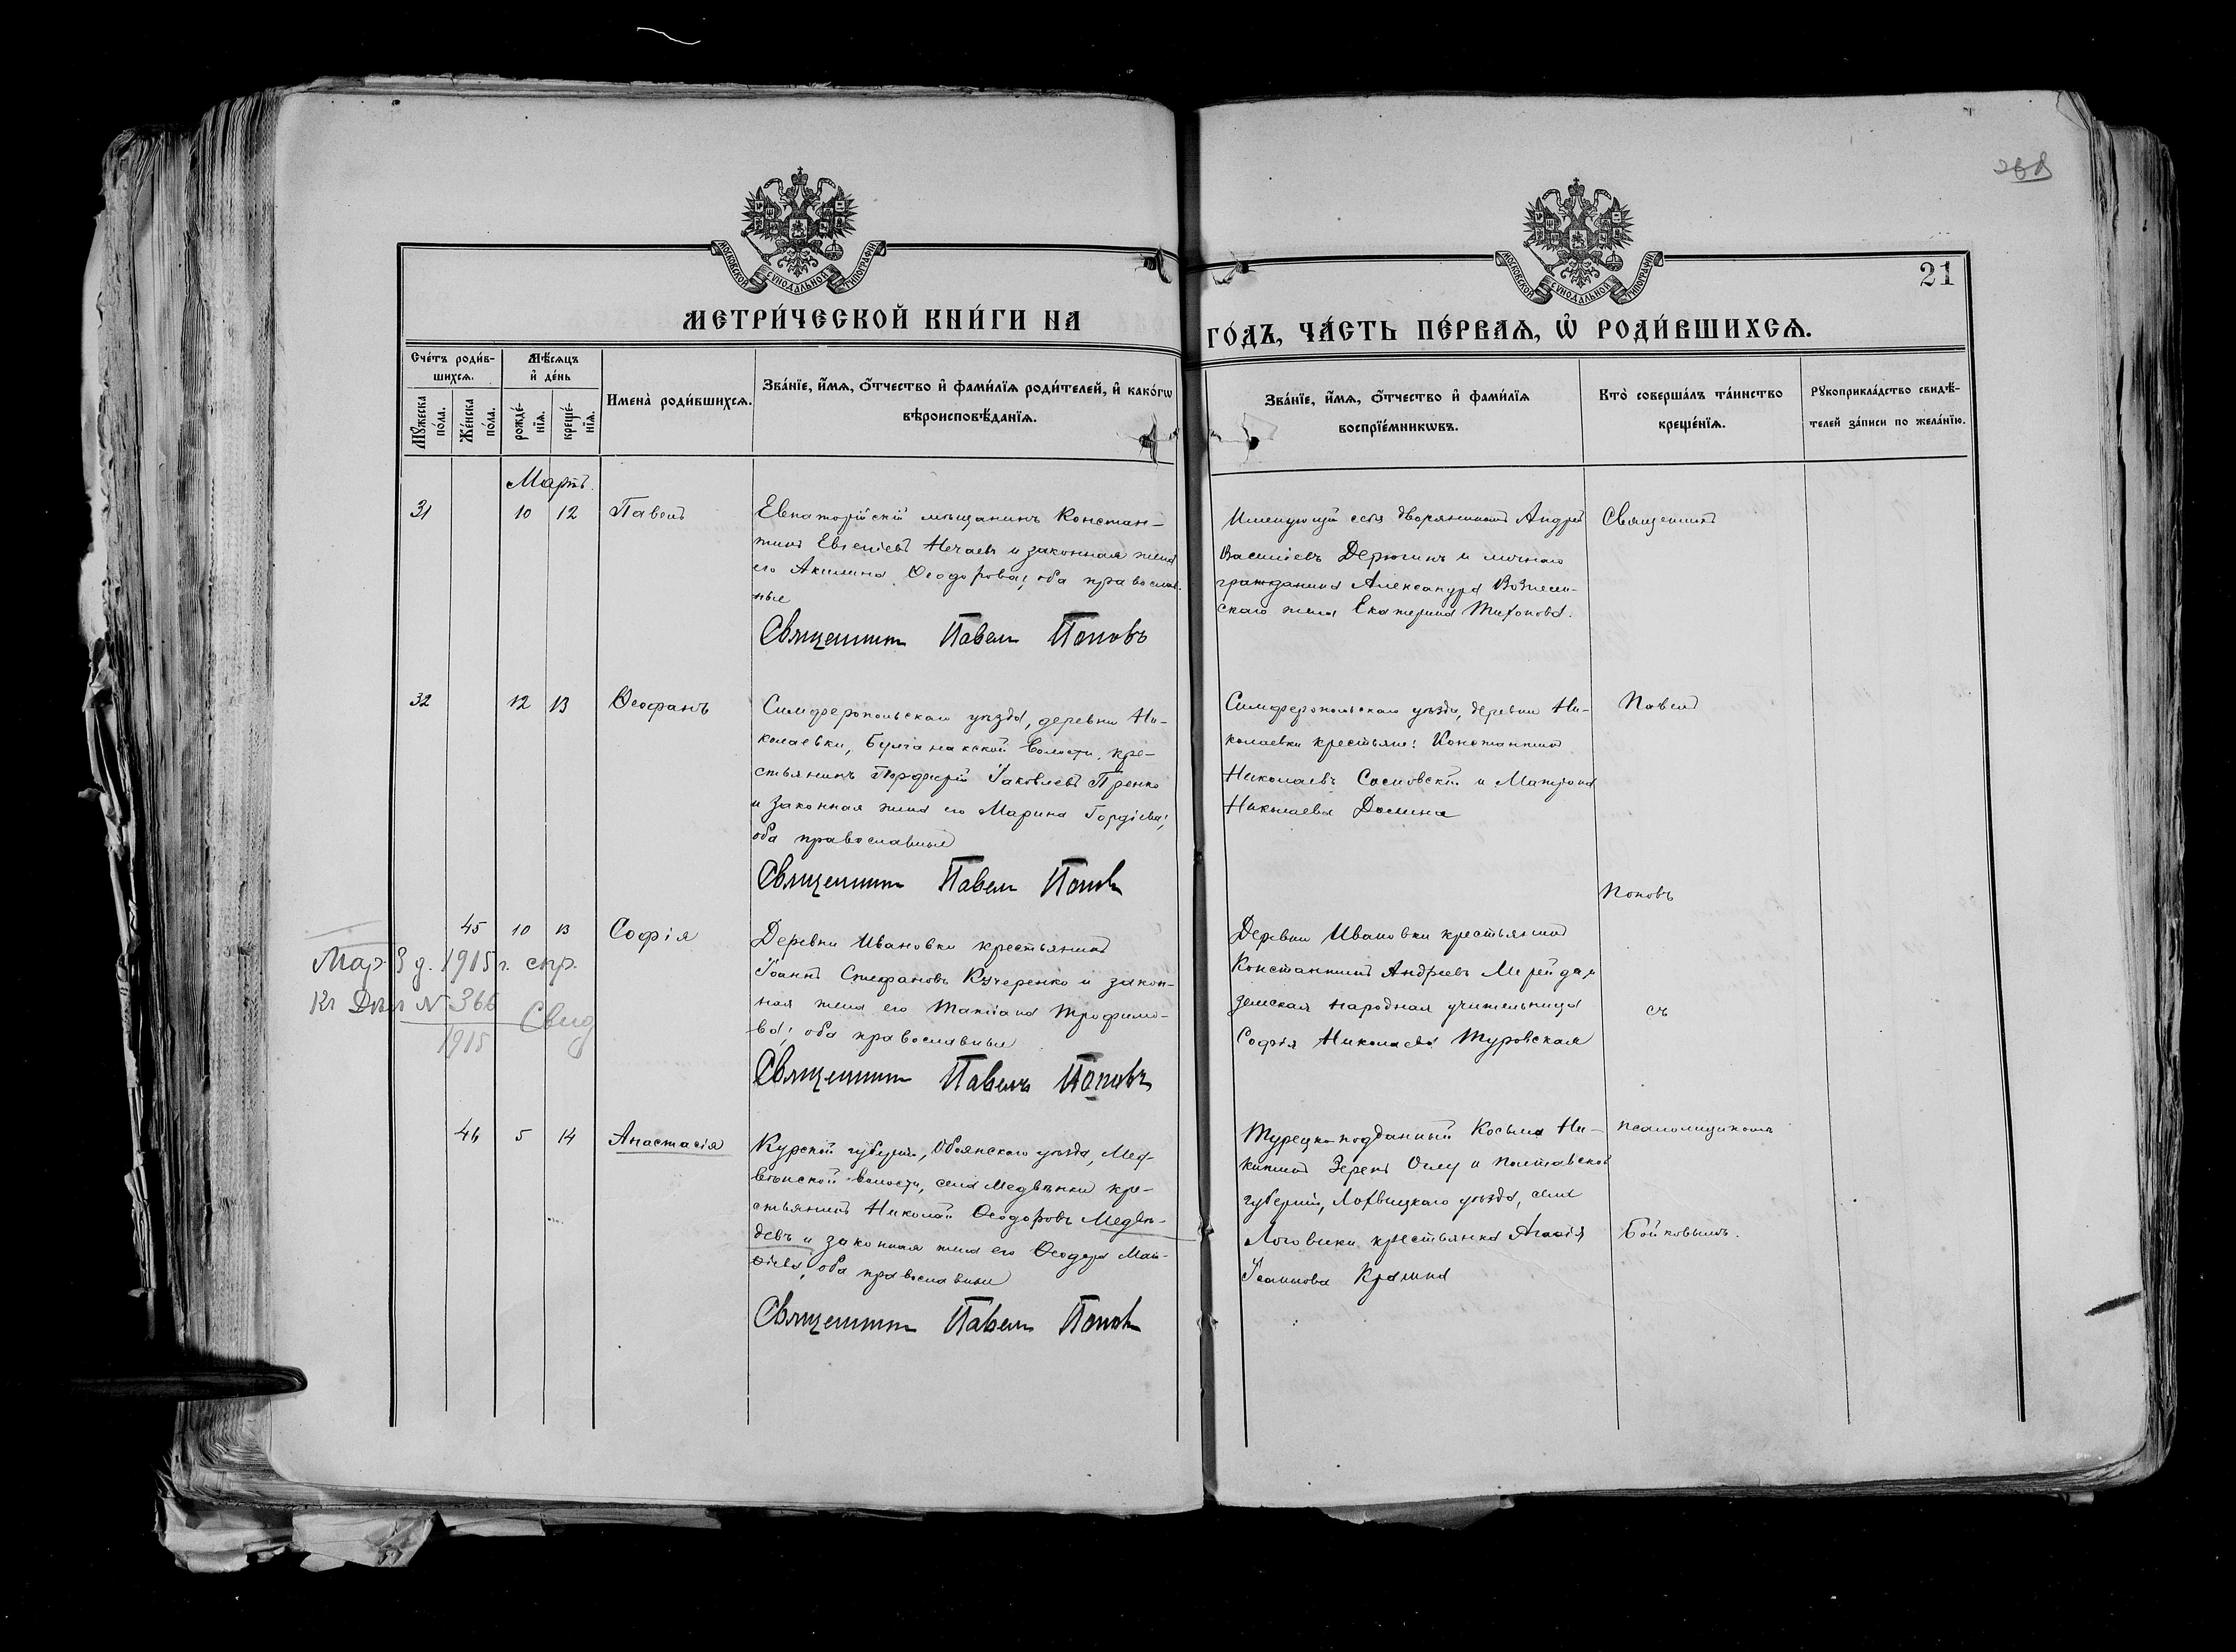 268
МОСКОВСКОЙ СѴНОДАЛЬНОЙ ТИПОГРАФІИ
МОСКОВСКОЙ СѴНОДАЛЬНОЙ ТИПОГРАФІИ
21
МЕТРИ́ЧЕСКОЙ КНИ́ГИ НА
ГО́ДЪ, ЧА́СТЬ ПЕ́РВАѦ, Ѡ҆ РОДИ́ВШИХСѦ.
Сче́тъ роди́в-
шихсѧ.
Мꙋ́жеска
по́ла.
Же́нска
по́ла.
Мѣ́сѧцъ
и҆ де́нь
рожде́-
нїѧ.
креще́-
нїѧ.
И҆мена̀ роди́вшихсѧ.
Зва́нїе, и҆́мѧ, ѻ҆́тчество и҆ фами́лїѧ роди́телей, и҆ како́гѡ
вѣроисповѣ́данїѧ.
Зва́нїе, и҆́мѧ, ѻ҆́тчество и҆ фами́лїѧ
воспрїе́мникѡвъ.
Кто̀ соверша́лъ та́инство
креще́нїѧ.
Рꙋкоприкла́дство свидѣ́-
телей за́писи по жела́нїю.
Мартъ.
31
10
12
Павелъ
Евпаторійскій мѣщанинъ Констан-
тинъ Евгеніевъ Нечаевъ и законная жена
его Акилина Ѳеодорова; оба православ-
ные
Священникъ Павелъ Поповъ
Именующій себя дворяниномъ Андрей
Василіевъ Дерюгинъ и личнаго
гражданина Александра Вознесен-
скаго жена Екатерина Тихонова.
Священникъ
32
12
13
Ѳеофанъ
Симферопольскаго уѣзда, деревни Ни-
колаевки, Булганакской волости, кре-
стьянинъ Порфирій Іаковлевъ Пренко
и законная жена его Марина Гордіева;
оба православные
Священникъ Павелъ Поповъ
Симферопольскаго уѣзда, деревни Ни-
колаевки крестьяне: Константинъ
Николаевъ Сосновскій и Матрона
Николаева Долина
Павелъ
Поповъ
45
10
13
Софія
Деревни Ивановки крестьянинъ
Іоаннъ Стефановъ Кучеренко и закон-
ная жена его Татіана Трофимо-
ва; оба православные
Священникъ Павелъ Поповъ
Деревни Ивановки крестьянинъ
Константинъ Андреевъ и
земская народная учительница
Софія Николаева Туровская
съ
Мар. 3 д. 1915 г. спр.
Кг Дѣло № 366
1915
Свид
46
5
14
Анастасія
Курской губерніи, Обоянскаго уѣзда, Мед-
вѣнской волости, села Медвѣнки кре-
стьянинъ Николай Ѳеодоровъ Медвѣ-
девъ и законная жена его Ѳеодора Мат-
ѳіева, оба православные
Священникъ Павелъ Поповъ
Турецко-подданный Косьма Ни-
китинъ Оглу и Полтавской
губерніи, Лохвицкаго уѣзда, села
крестьянка Агафія
Іоаннова
псаломщикомъ
Бойковымъ.